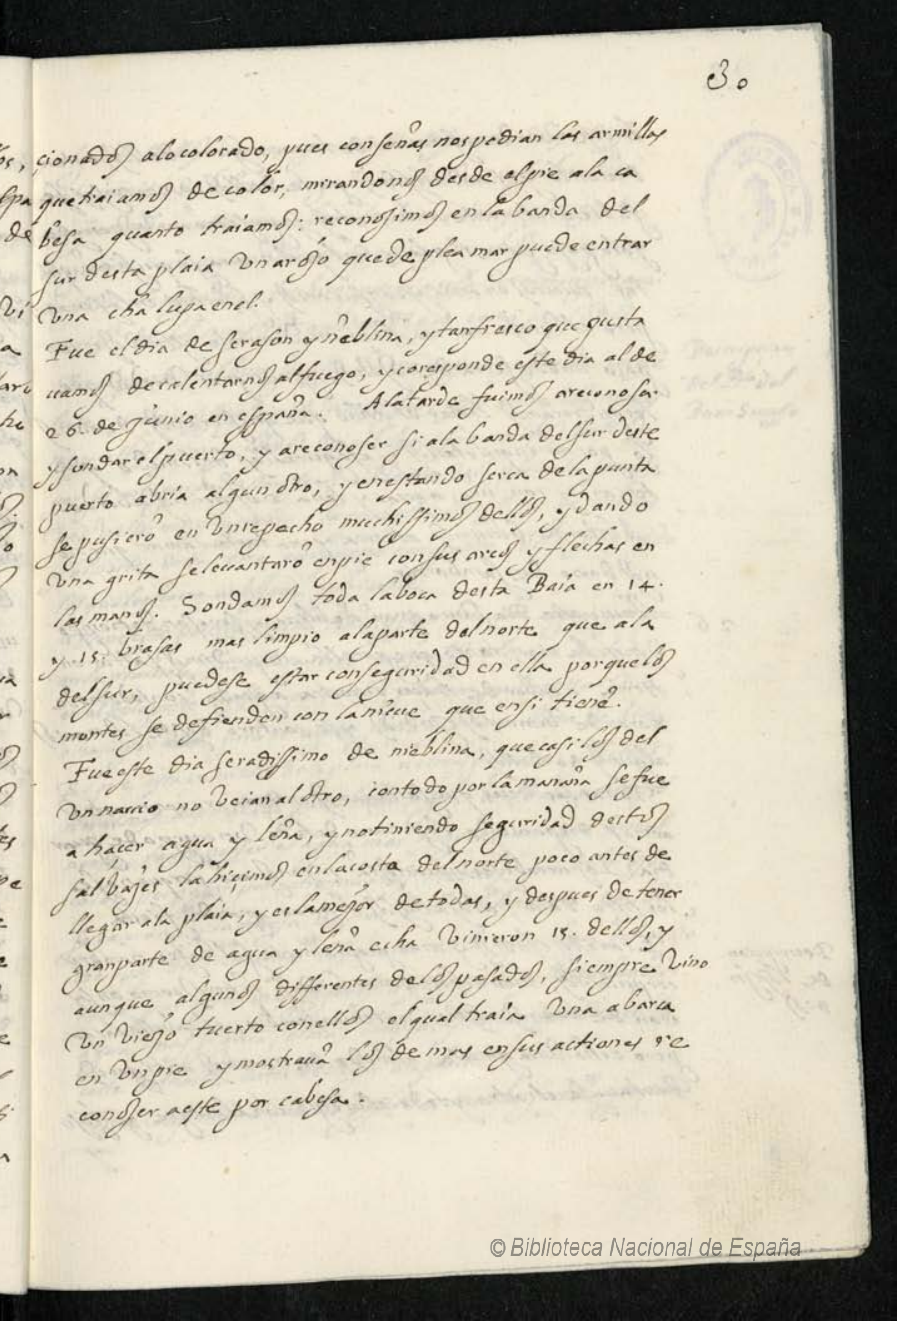 30
çionados alo colorado, pues con señas nos pedian las armillas
que traiamos de color, mirandonos desde el pie a la ca
besa quanto traiamos: reconosimos en la banda del
sur desta plaia un aroio que de plea mar puede entrar
una chalupa en el.
Fue el dia de serason y neblina, y tan fresco que gusta
uamos de calentarnos al fuego, y coresponde este dia al de
26. de Junio en españa. A la tarde fuimos a reconoser
y sondar el puerto, y a reconoser si a la banda del sur deste
puerto abria algun otro, y en estando serca de la punta
se pusierõ en un repecho muchissimos dellos, y dando
una grita se leuantarõ en pie con sus arcos y flechas en
las manos. Sondamos toda la boca desta Baía en 14.
y 15. brasas mas limpio a la parte del norte que a la
del sur, puedese estar con seguridad en ella porque los
montes se defienden con la nieue que en si tienẽ.
Fue este dia seradissimo de nieblina, que casi los del
un nauio no veian al otro, i con todo por la manana se fue
a hacer agua y leña, y no tiniendo seguridad destos
salvajes la hiçimos en la costa del norte poco antes de
llegar a la plaia, y es la mejor de todas, y despues de tener
gran parte de agua y leña echa vinieron 15. dellos, y
aunque algunos differentes de los pasados, siempre vino
un viejo tuerto con ellos el qual traia una abarca
en un pie y mostrauã los de mas en sus actiones re
conoser a este por cabesa.
© Biblioteca Nacional de España